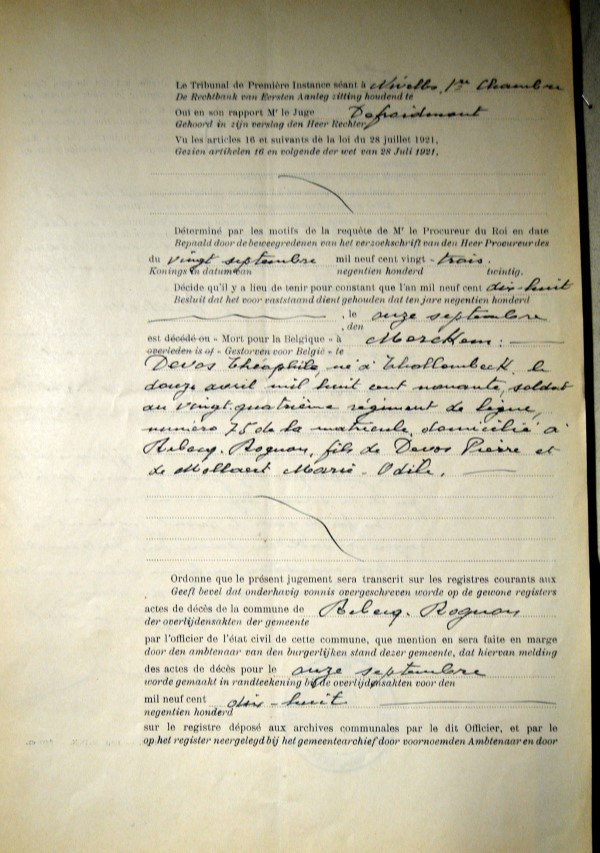 Le Tribunal de Première Instance séant à Nivelles, 1re Chambre
De Rechtbank van Eersten Aanleg zitting houdend te
Oui en son rapport Mr le Juge Defraidmont
Gehoord in zijn verslag den Heer Rechter
Vu les articles 16 et suivants de la loi du 28 juillet 1921,
Gezien artikelen 16 en volgende der wet van 28 Juli 1921,
Déterminé par les motifs de la requête de Mr le Procureur du Roi en date
Bepaald door de beweegredenen van het verzoekschrift van den Heer Procureur des
du vingt septembre mil neuf cent vingt-trois.
Konings in datum van negentien honderd twintig.
Décide qu'il y a lieu de tenir pour constant que l'an mil neuf cent dix-huit
Besluit dat het voor vaststaand dient gehouden dat ten jare negentien honderd
, le onze septembre
, den
est décédé ou « Mort pour la Belgique » à Merckem :
overleden is of « Gestorven voor België » te
Devos Théophile, né à Thollembeek, le
douze avril mil huit cent nonante, soldat
au vingt-quatrième régiment de ligne,
numéro 75 de la matricule, domicilié à
Rebecq-Rognon, fils de Devos Pierre et
de Mollaert Marie-Odile,
Ordonne que le présent jugement sera transcrit sur les registres courants aux
Geeft bevel dat onderhavig vonnis overgeschreven worde op de gewone registers
actes de décès de la commune de Rebecq-Rognon
der overlijdensakten der gemeente
par l'officier de l'état civil de cette commune, que mention en sera faite en marge
door den ambtenaar van den burgerlijken stand dezer gemeente, dat hiervan melding
des actes de décès pour le onze septembre
worde gemaakt in randteekening bij de overlijdensakten voor den
mil neuf cent dix-huit
negentien honderd
sur le registre déposé aux archives communales par le dit Officier, et par le
op het register neergelegd bij het gemeentearchief door voornoemden Ambtenaar en door